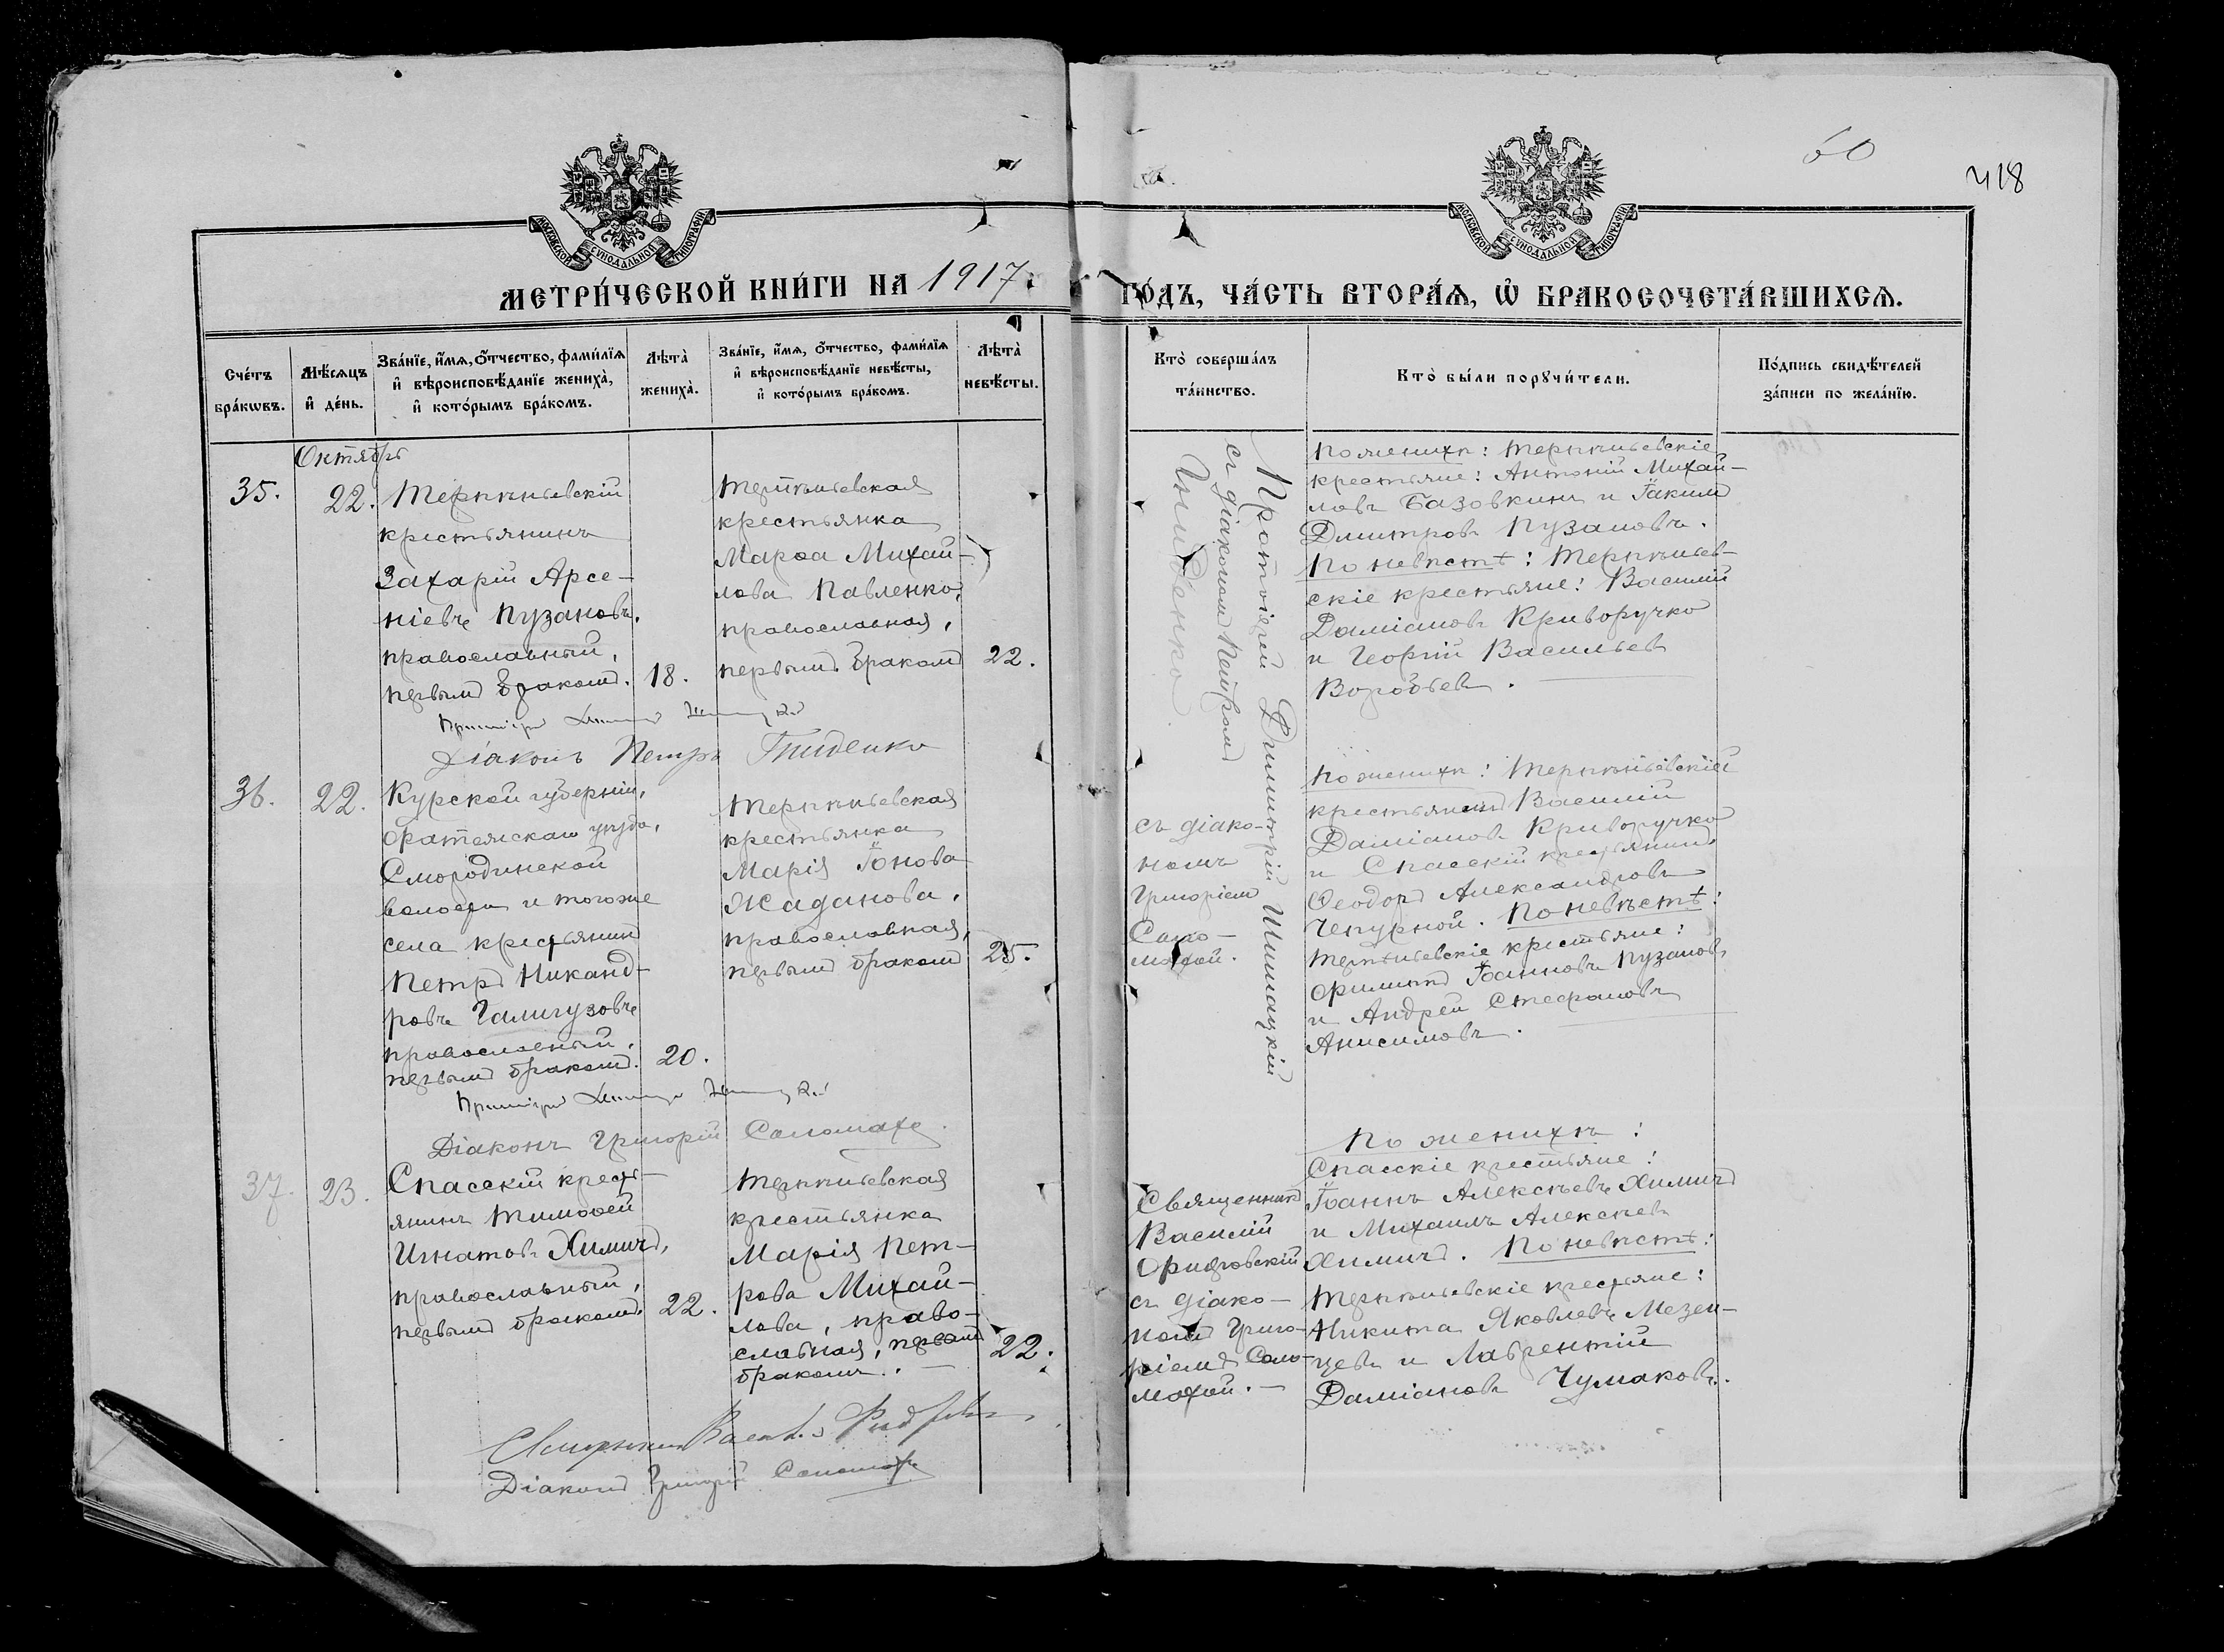 60
418
МОСКОВСКОЙ СѴНОДАЛЬНОЙ ТИПОГРАФІИ
МОСКОВСКОЙ СѴНОДАЛЬНОЙ ТИПОГРАФІИ
МЕТРИ́ЧЕСКОЙ КНИ́ГИ НА 1917.
ГО́ДЪ, ЧА́СТЬ ВТОРА́Ѧ, Ѡ҆ БРАКОСОЧЕТА́ВШИХСѦ.
Сче́тъ
бра́кѡвъ.
Мѣ́сѧцъ
и҆ де́нь.
Зва́нїе, и҆́мѧ, Ѻ҆́тчество, фами́лїѧ
и҆ вѣроисповѣ́данїе жениха̀,
и҆ кото́рымъ бра́комъ.
Лѣта̀
жениха̀.
Зва́нїе, и҆́мѧ, ѻ҆́тчество, фами́лїѧ
и҆ вѣроисповѣ́данїе невѣ́сты,
и҆ кото́рымъ бра́комъ.
Лѣта̀
невѣ́сты.
Кто̀ соверша́лъ
та́инство.
Кто̀ бы́ли порꙋчи́тели.
По́дпись свидѣ́телей
за́писи по жела́нїю.
Октябрь
35.
22.
Терпѣньевскій
крестьянинъ
Захарій Арсе-
ніевъ Пузановъ,
православный,
первым браком.
18.
Терпѣньевская
крестьянка
Марѳа Михай-
лова Павленко,
православная,
первым браком
22.
Протоіерей Димитрій Шимацкій
съ діакономъ Петром
Гниденко.
По женихѣ: Терпѣньевскіе
крестьяне: Антоній Михай-
ловъ Базовкинъ и Іаким
Дмитровъ Пузановъ.
По невѣстѣ: Терпѣньев-
скіе крестьяне: Василій
Даміановъ Криворучко
и Георгій Васильев
Воробьев.
Діаконъ Петръ Гниденко
36.
22.
Курской губерніи,
Фатежскаго уѣзда,
Смородинской
волости и того же
села крестьянин
Петр Никанд-
ровъ Галигузовъ
православный,
первым браком.
20.
Терпѣньевская
крестьянка
Марія Іонова
Жаданова,
православная,
первым браком
25.
съ діако-
номъ
Григоріем
Соло-
махой.
По женихѣ: Терпѣньевскій
крестьянин Василій
Даміановъ Криворучко
и Спасскій крестьянин
Ѳеодор Александровъ
Чепурной. По невѣстѣ:
Терпѣньевскіе крестьяне:
Филипп Іоанновъ Пузановъ
и Андрей Стефановъ
Анисимовъ.
Діаконъ Григорій Соломаха.
37.
23.
Спасскій кресть-
янинъ Тимоѳей
Игнатовъ Химич,
православный,
первым браком.
22.
Терпѣньевская
крестьянка
Марія Пет-
рова Михай-
лова, право-
славная, первым
браком.
22.
Священник
Василій
Фидровскій
съ діако-
ном Григо-
ріем Соло-
махой.
По женихѣ:
Спасскіе крестьяне:
Іоаннъ Алексѣевъ Химич
и Михаилъ Алексѣев
Химич. По невѣстѣ:
Терпѣньевскіе крестьяне:
Никита Яковлевъ Мезен-
цевъ и Лаврентій
Даміановъ Чумаковъ.
Діакон Григорій Соломаха